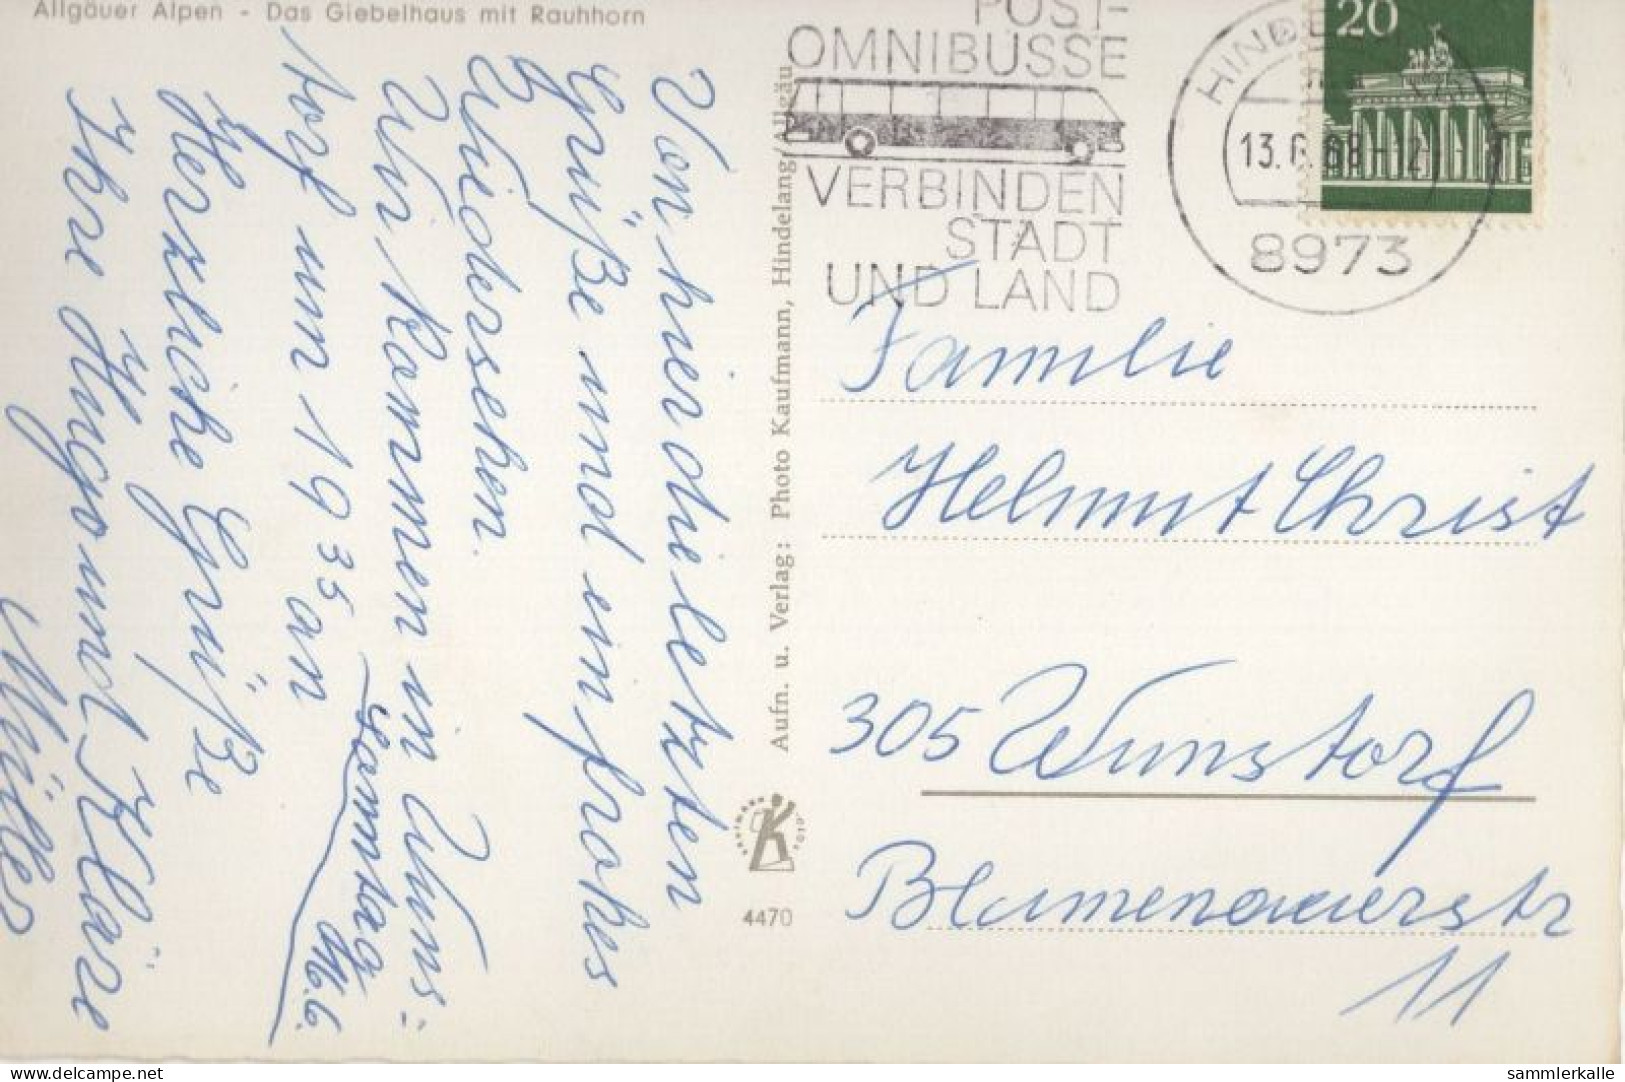 Allgäuer Alpen - Das Giebelhaus mit Rauhhorn
Von hier die letzten
Grüße und ein frohes
Wiedersehen.
Wir kommen in Wuns=
torf um 19 35 an
Sonntag 16.6.
Herzliche Grüße
Ihre Hugo und Kläre
Müller
Aufn. u. Verlag: Photo Kaufmann, Hindelang/Allgäu
4470
POST-
OMNIBUSSE
VERBINDEN
STADT
UND LAND
13.6.68
8973
20
Familie
Helmut Christ
305 Wunstorf
Blumenauerstr
11
delcampe.net
sammlerkalle